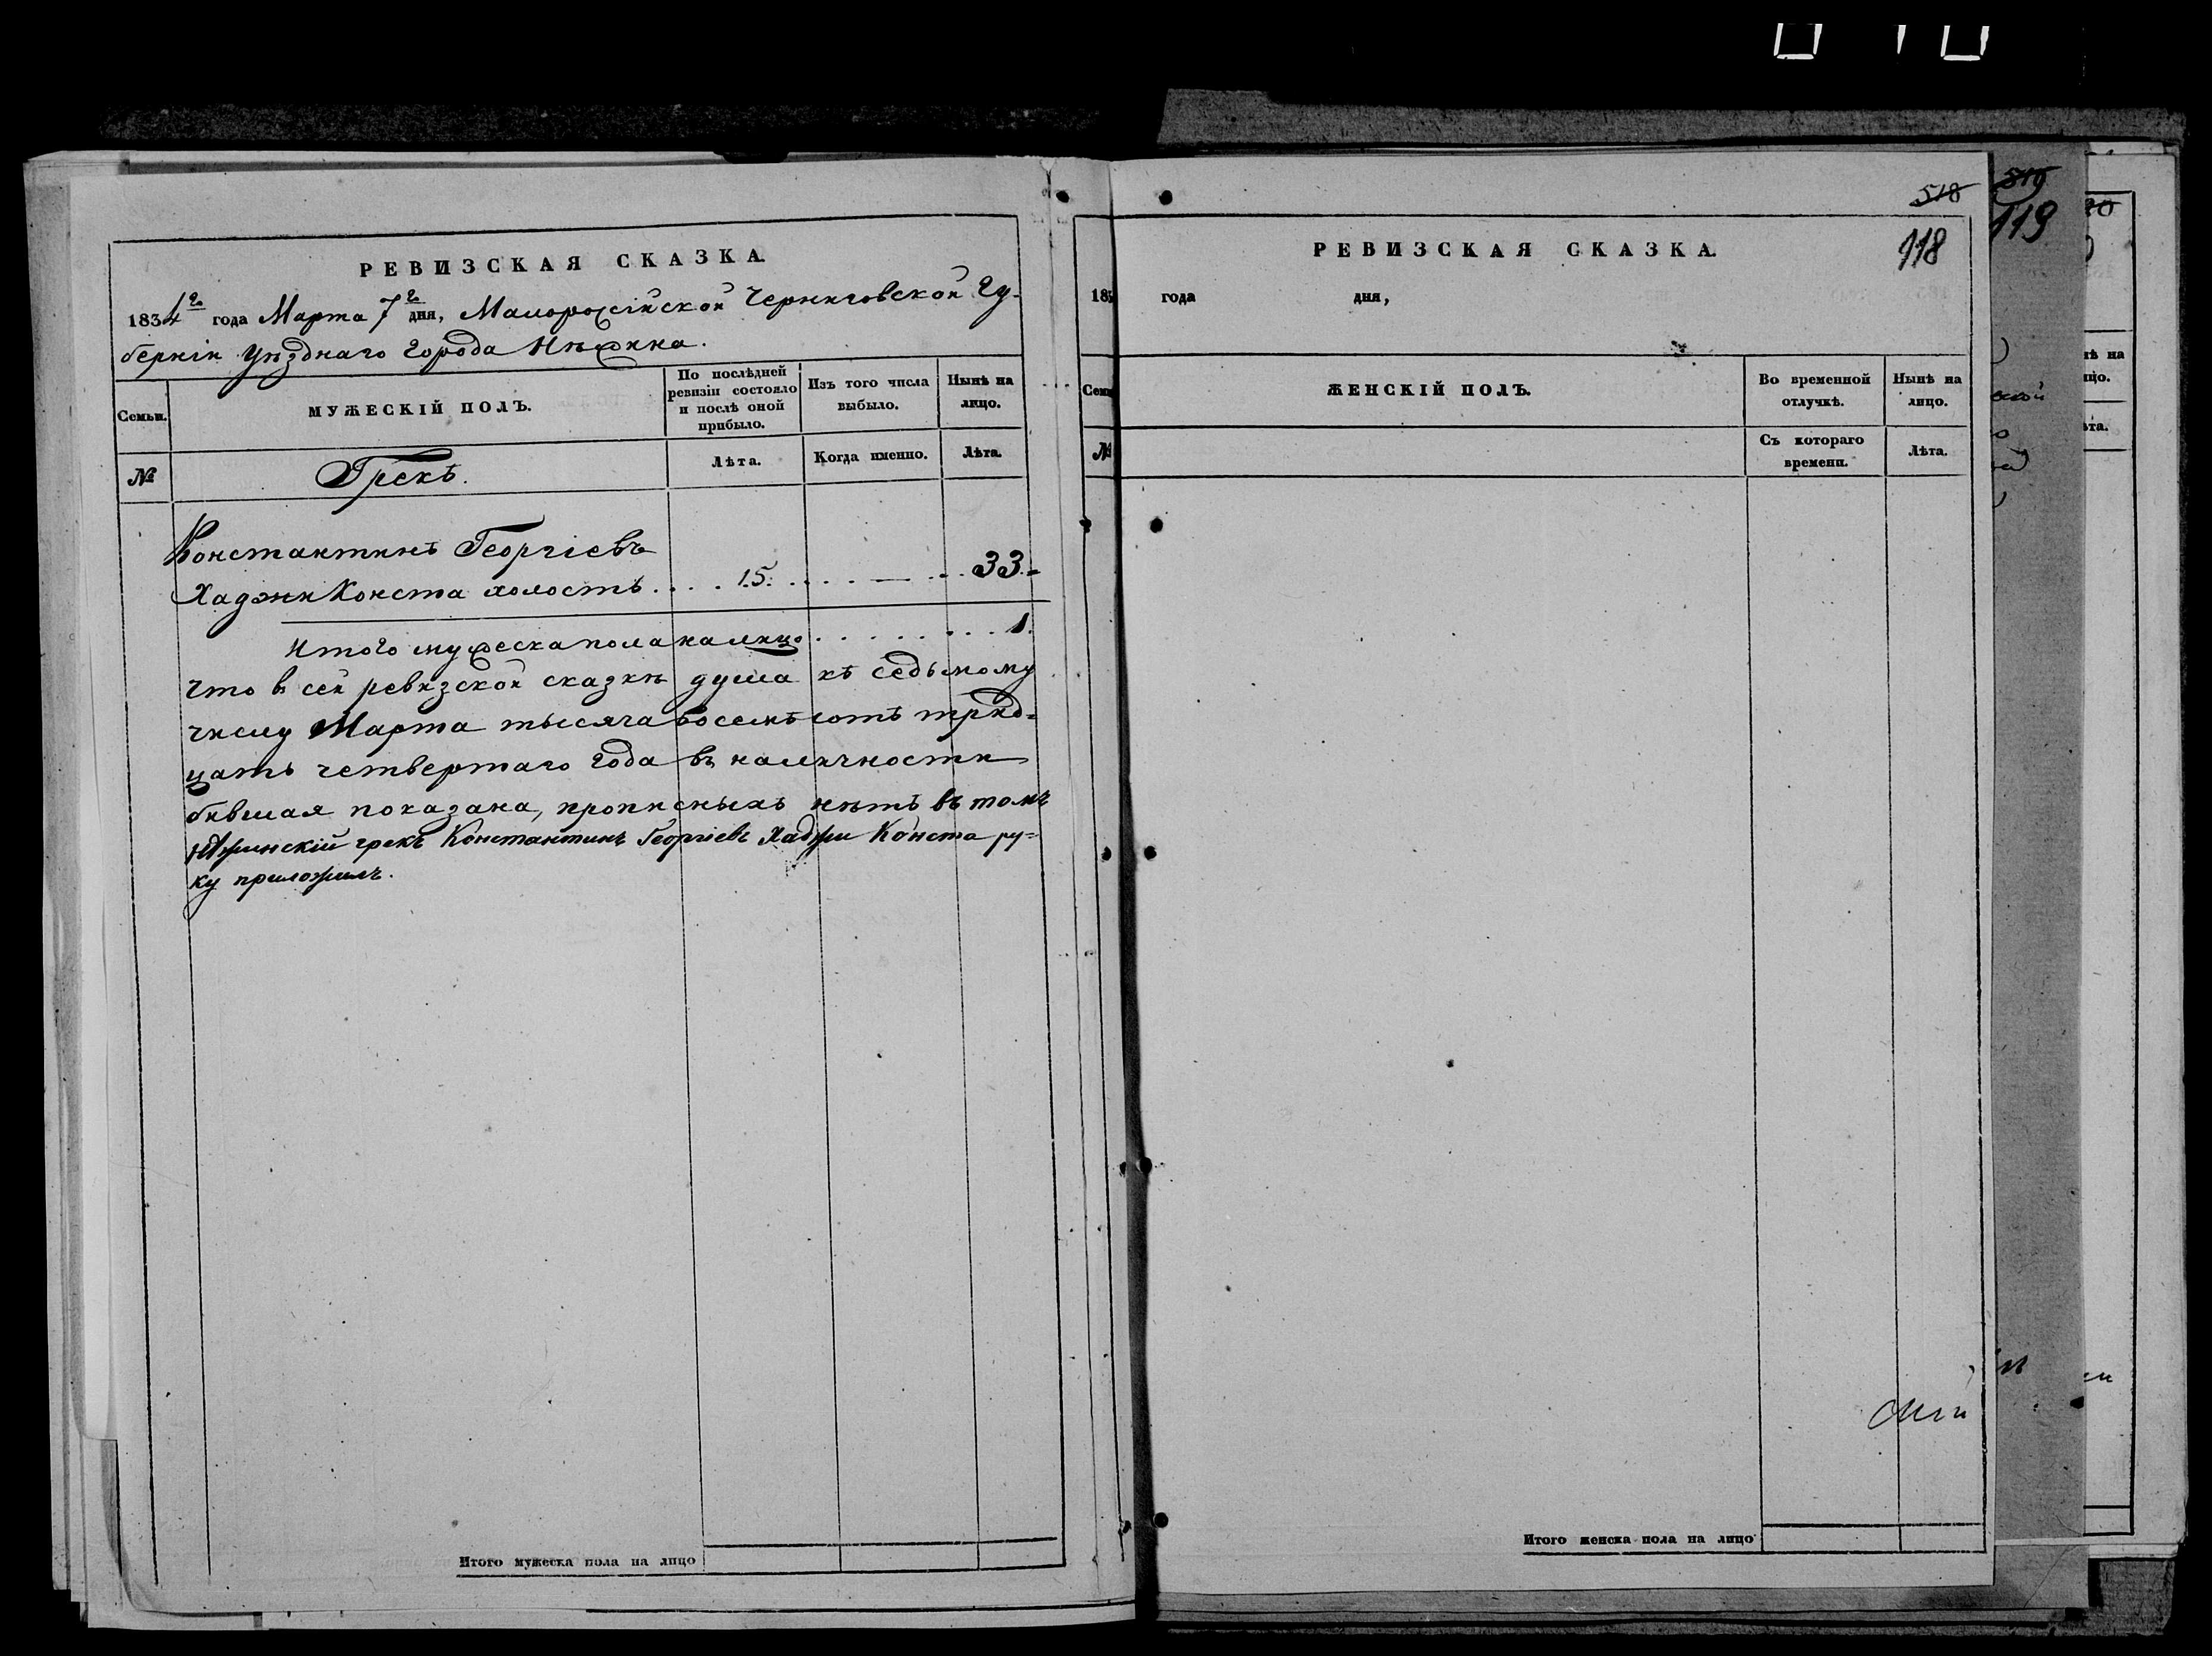 РЕВИЗСКАЯ СКАЗКА.
1834го года Марта 7го дня, Малороссійской Черниговской Гу-
берніи Уѣзднаго Города Нѣжина.
Семьи.
МУЖЕСКІЙ ПОЛЪ.
По послѣдней ревизіи состояло и послѣ оной прибыло.
Изъ того числа выбыло.
Нынѣ на лицо.
№
Грекъ.
Лѣта.
Когда именно.
Лѣта.
Константинъ Георгіевъ
Хаджи Конста холостъ . . . . 15. . . . . — . . . 33.
Итого мужеска пола налицо . . . . . . . . 1.
что в сей ревизской сказкѣ душа къ седьмому
числу Марта тысяча восемьсотъ трид-
цать четвертаго года въ наличности
бывшая показана, прописныхъ нѣтъ въ томъ
Нѣжинскій грекъ Константинъ Георгіевъ Хаджи Конста ру-
ку приложилъ.
Итого мужеска пола на лицо
518
118
РЕВИЗСКАЯ СКАЗКА.
183 года дня,
Семьи
ЖЕНСКІЙ ПОЛЪ.
Во временной отлучкѣ.
Нынѣ на лицо.
№
Съ котораго времени.
Лѣта.
Итого женска пола на лицо
519
119